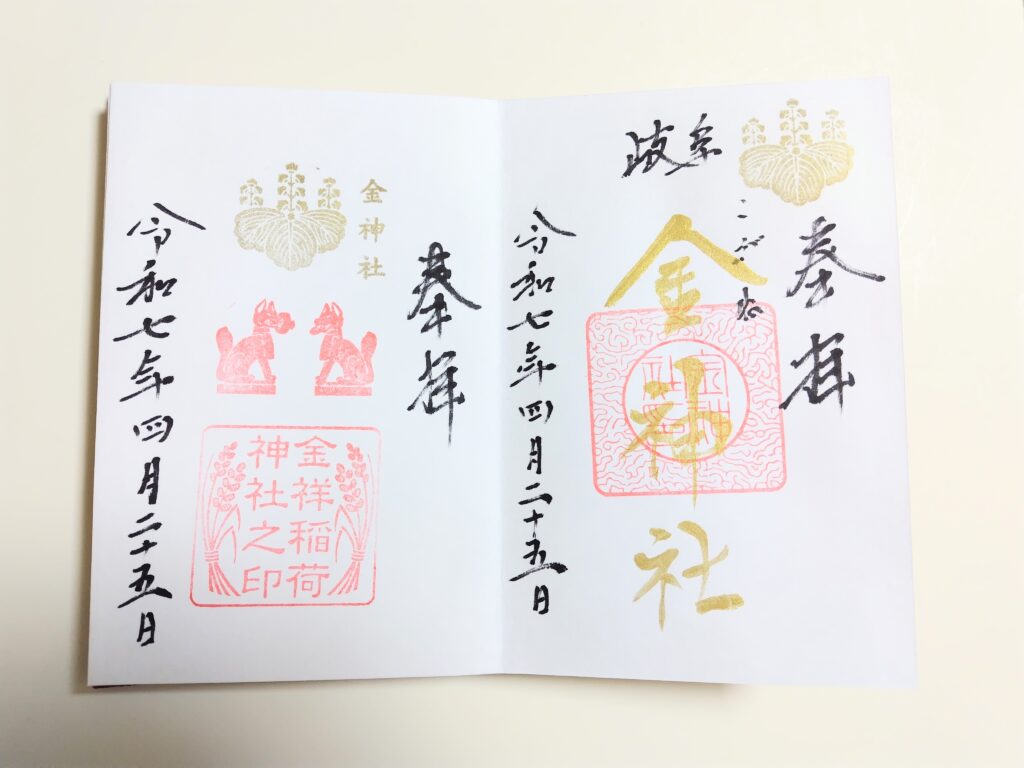 奉拝
岐阜
こがね
金神社
令和七年四月二十五日
奉拝
金神社
金祥稲荷
神社之印
令和七年四月二十五日